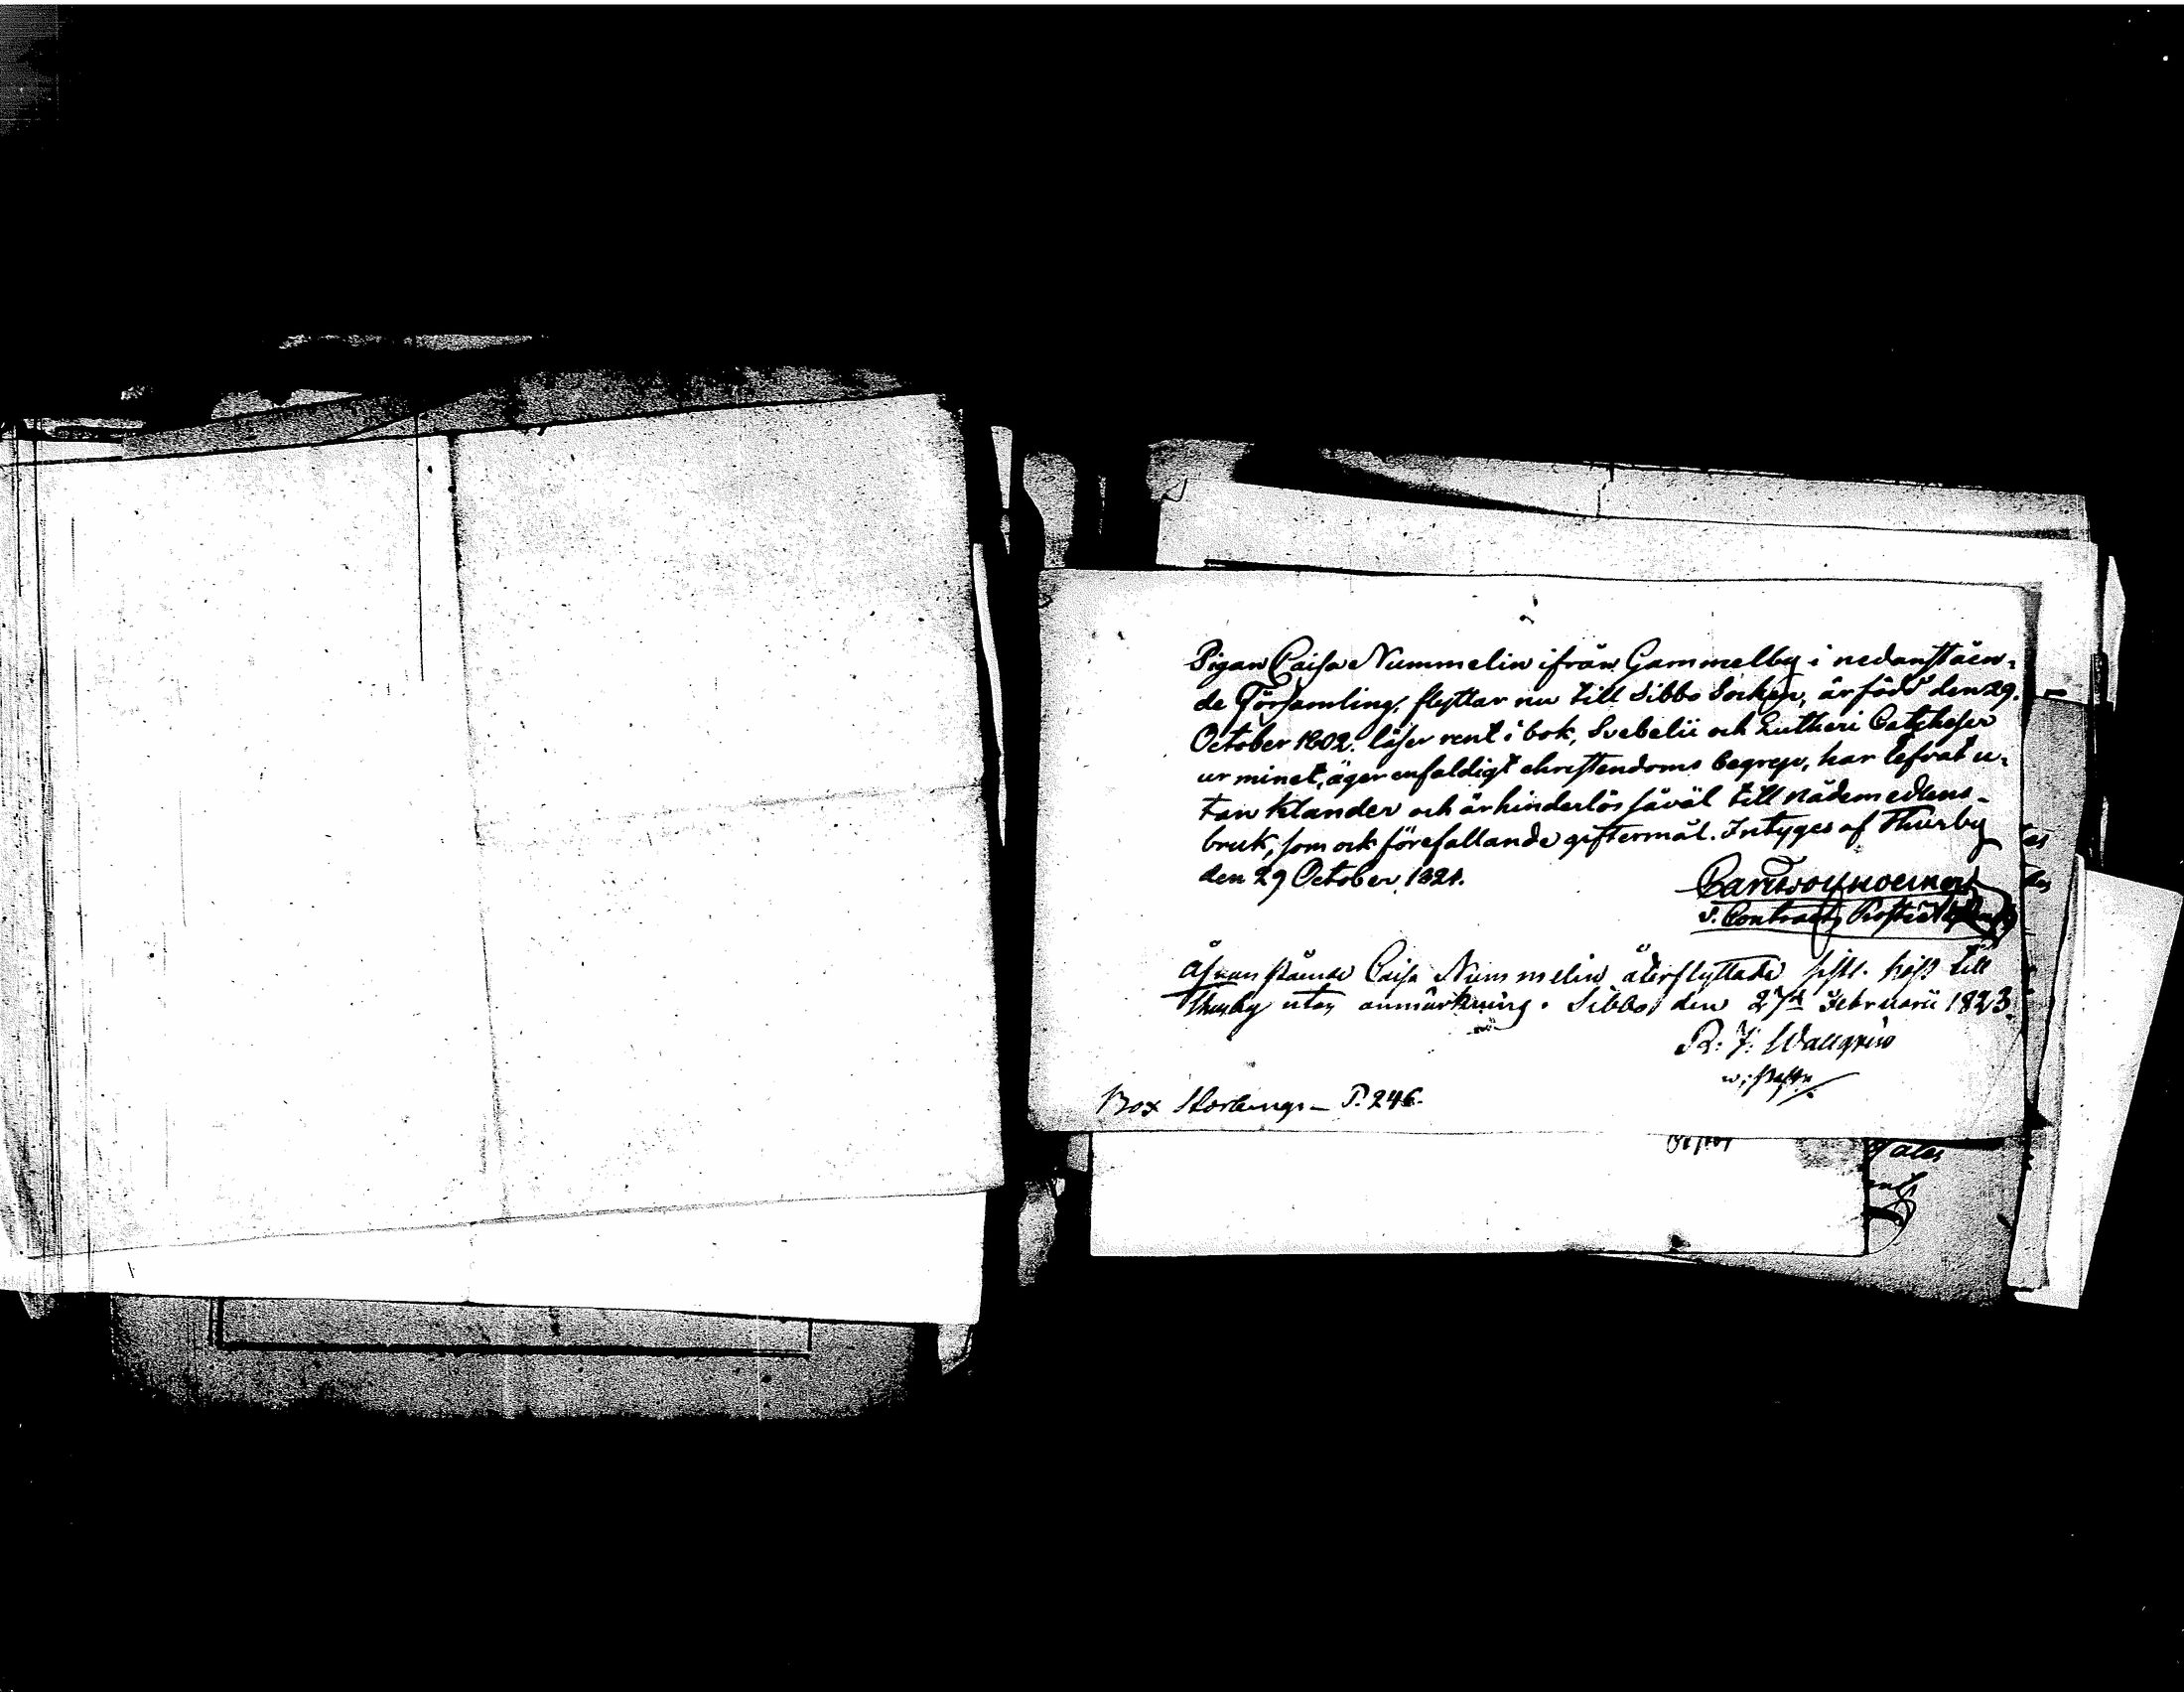 Pigan Caisa Nummelin ifrån Gammelby i nedanståen-
de Församling, flyttar nu till Sibbo Socken, är född den 29.
October 1802. läser rent i bok, Svebelii och Lutheri Catcheser
ur minet, äger enfaldigt christendoms begrep, har lefvat u-
tan klander och är hinderlös såväl till nådemedlens-
bruk, som ock förefallande giftermål. Intyges af Thurby
den 29 October 1821.
v. Contracts Prost
Ofvanstående Caisa Nummelin återflyttade sistl. höst till
Thurby utan anmärkning. Sibbo den 27de Februarii 1823.
R. J. Wallgren
v; Pastor
Box Storbengs - P. 246.